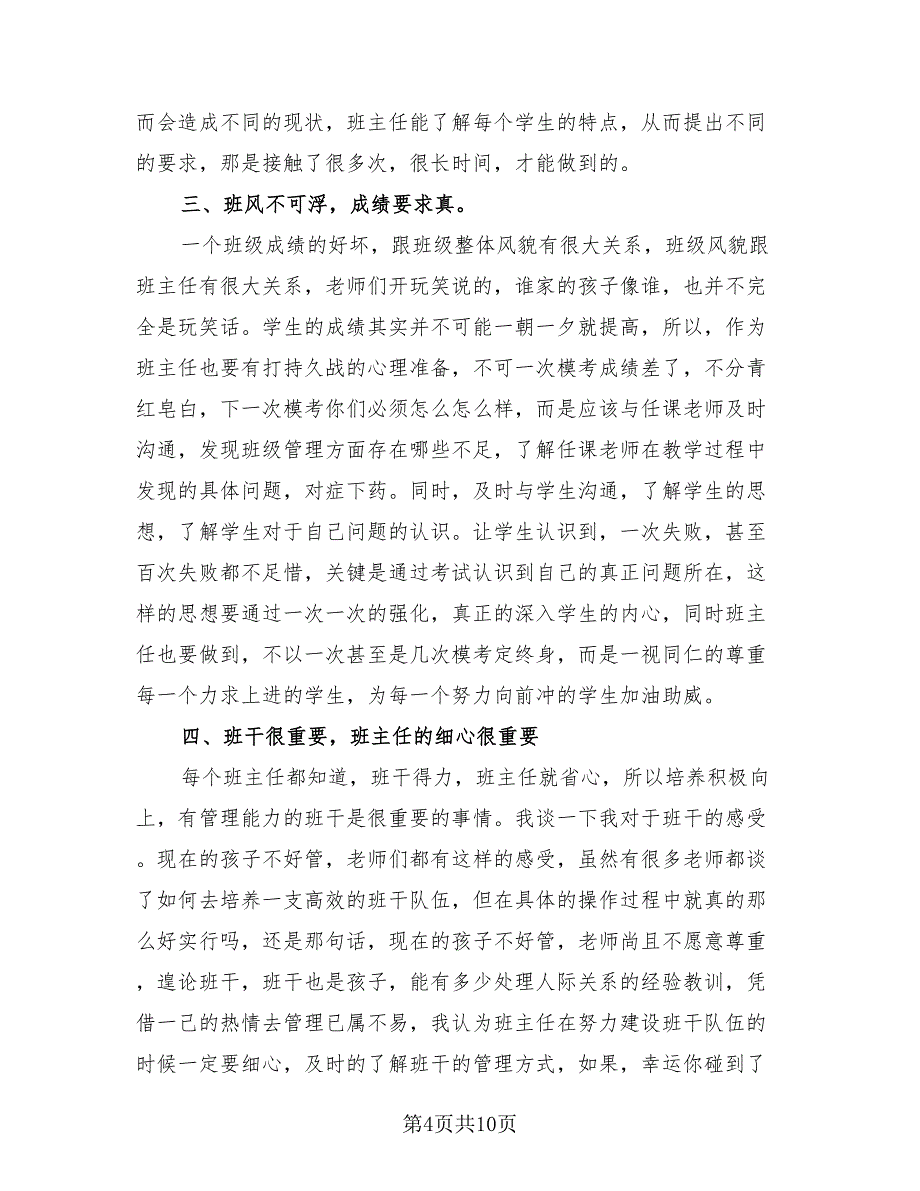 而会造成不同的现状，班主任能了解每个学生的特点，从而提出不同
的要求，那是接触了很多次，很长时间，才能做到的。
三、班风不可浮，成绩要求真。
一个班级成绩的好坏，跟班级整体风貌有很大关系，班级风貌跟
班主任有很大关系，老师们开玩笑说的，谁家的孩子像谁，也并不完
全是玩笑话。学生的成绩其实并不可能一朝一夕就提高，所以，作为
班主任也要有打持久战的心理准备，不可一次模考成绩差了，不分青
红皂白，下一次模考你们必须怎么怎么样，而是应该与任课老师及时
沟通，发现班级管理方面存在哪些不足，了解任课老师在教学过程中
发现的具体问题，对症下药。同时，及时与学生沟通，了解学生的思
想，了解学生对于自己问题的认识。让学生认识到，一次失败，甚至
百次失败都不足惜，关键是通过考试认识到自己的真正问题所在，这
样的思想要通过一次一次的强化，真正的深入学生的内心，同时班主
任也要做到，不以一次甚至是几次模考定终身，而是一视同仁的尊重
每一个力求上进的学生，为每一个努力向前冲的学生加油助威。
四、班干很重要，班主任的细心很重要
每个班主任都知道，班干得力，班主任就省心，所以培养积极向
上，有管理能力的班干是很重要的事情。我谈一下我对于班干的感受
。现在的孩子不好管，老师们都有这样的感受，虽然有很多老师都谈
了如何去培养一支高效的班干队伍，但在具体的操作过程中就真的那
么好实行吗，还是那句话，现在的孩子不好管，老师尚且不愿意尊重
，遑论班干，班干也是孩子，能有多少处理人际关系的经验教训，凭
借一己的热情去管理已属不易，我认为班主任在努力建设班干队伍的
时候一定要细心，及时的了解班干的管理方式，如果，幸运你碰到了
第4页共10页